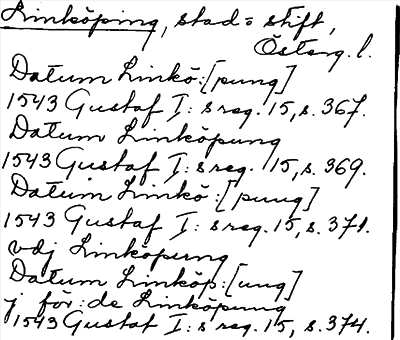 Linköping, stad = stift,
Österg. l.
Datum Linkö:[pung]
1543 Gustaf I: s reg. 15, s. 367.
Datum Linköpung
1543 Gustaf I: s reg. 15, s. 369.
Datum Linkö:[pung]
1543 Gustaf I: s reg. 15, s. 371.
vdj Linköpung
Datum Linköp:[ung]
j för:de Linköpung
1543 Gustaf I: s reg. 15, s. 374.